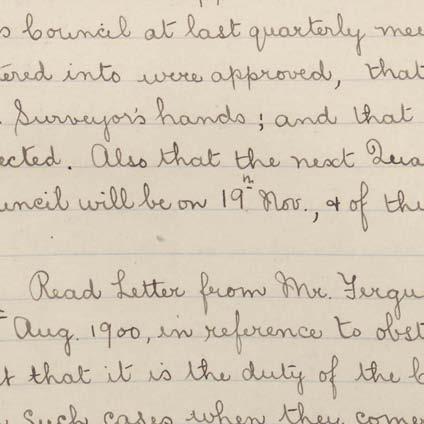 s Council at last quarterly mee
tered into were approved, that
. Surveyor's hands; and that
ected. Also that the next Qua
uncil will be on 19th Nov., & of the
Read Letter from Mr. Fergu
Aug. 1900, in reference to obst
t that it is the duty of the
such cases when they come